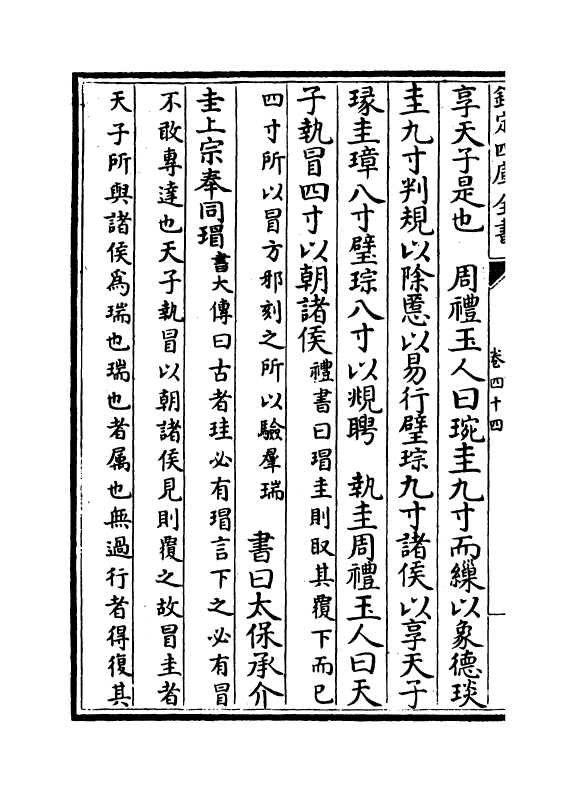 欽定四庫全書
卷四十四
享天子是也　周禮玉人曰琬圭九寸而繅以象德琰
圭九寸判規以除慝以易行璧琮九寸諸侯以享天子
瑑圭璋八寸璧琮八寸以覜聘　執圭周禮玉人曰天
子執冒四寸以朝諸侯禮書曰瑁圭則取其覆下而已
四寸所以冒方邪刻之所以驗羣瑞　書曰太保承介
圭上宗奉同瑁書大傳曰古者珪必有瑁言下之必有冒
不敢專達也天子執冒以朝諸侯見則覆之故冒圭者
天子所與諸侯為瑞也瑞也者属也無過行者得復其